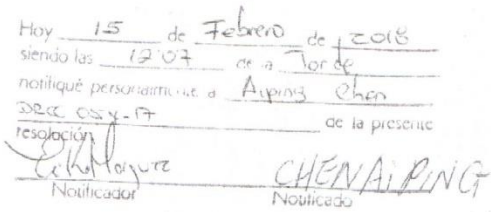 Hoy 15 de Febrero de 2018
siendo las 12:07 de la Tarde
notifiqué personalmente a Aiping Chen
DRCC 054-17 de la presente
resolución
CHEN AI PING
Notificador Notificado